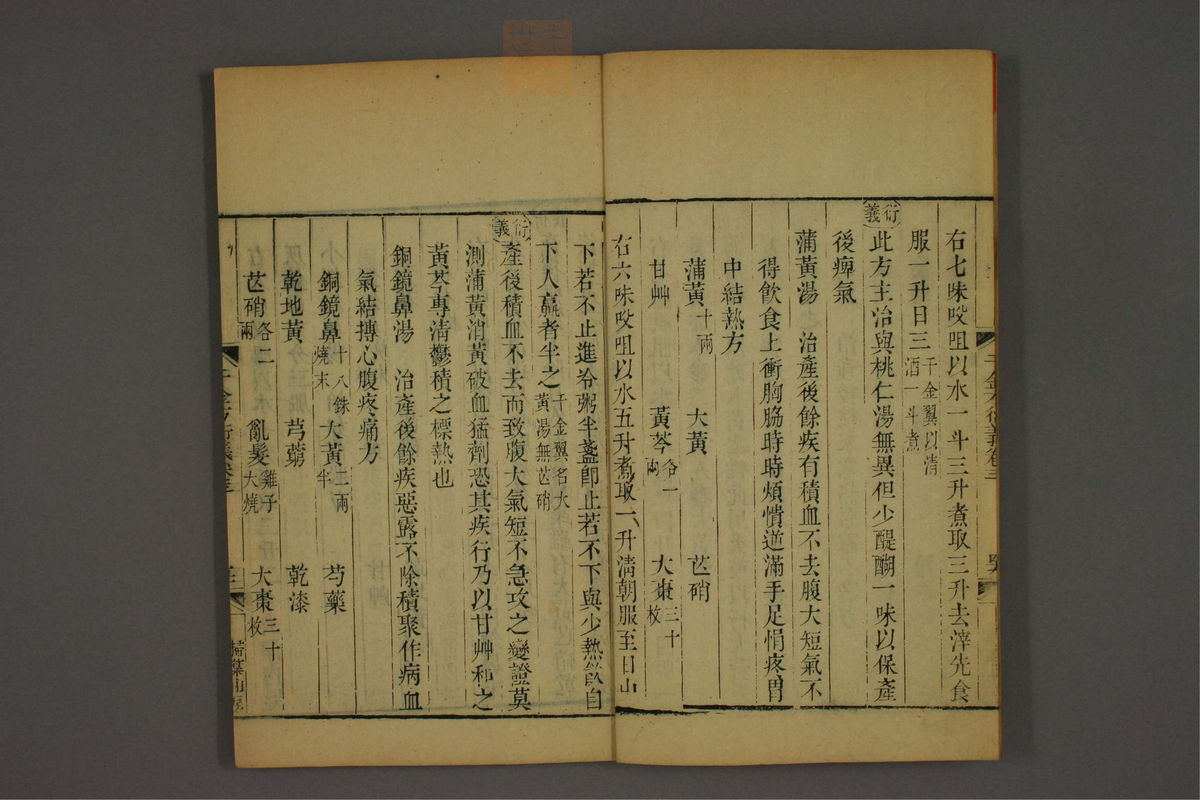 右七味㕮咀以水一斗三升煮取三升去滓先食
服一升日三千金翼以清酒一斗煮
衍義
此方主治與桃仁湯無異但少醍醐一味以保產
後痺氣
蒲黃湯 治產後餘疾有積血不去腹大短氣不
得飲食上衝胸脇時時煩憒逆滿手足悁疼胃
中結熱方
蒲黃十兩 大黃 芒硝
甘艸 黃芩各一兩 大棗三十枚
右六味㕮咀以水五升煮取一升清朝服至日
下若不止進冷粥半盞卽止若不下與少熱飲自
下人羸者半之千金翼名大黃湯無芒硝
衍義
產後積血不去而致腹大氣短不急攻之變證莫
測蒲黃消黃破血猛劑恐其疾行乃以甘艸和之
黃芩專淸鬱積之標熱也
銅鏡鼻湯 治產後餘疾惡露不除積聚作病血
氣結搏心腹疼痛方
銅鏡鼻十八銖燒末 大黃二兩半 芍藥
乾地黃 芎藭 乾漆
芒硝各二兩 亂髮雞子大燒 大棗三十枚
千金方衍義卷三
掃葉山房